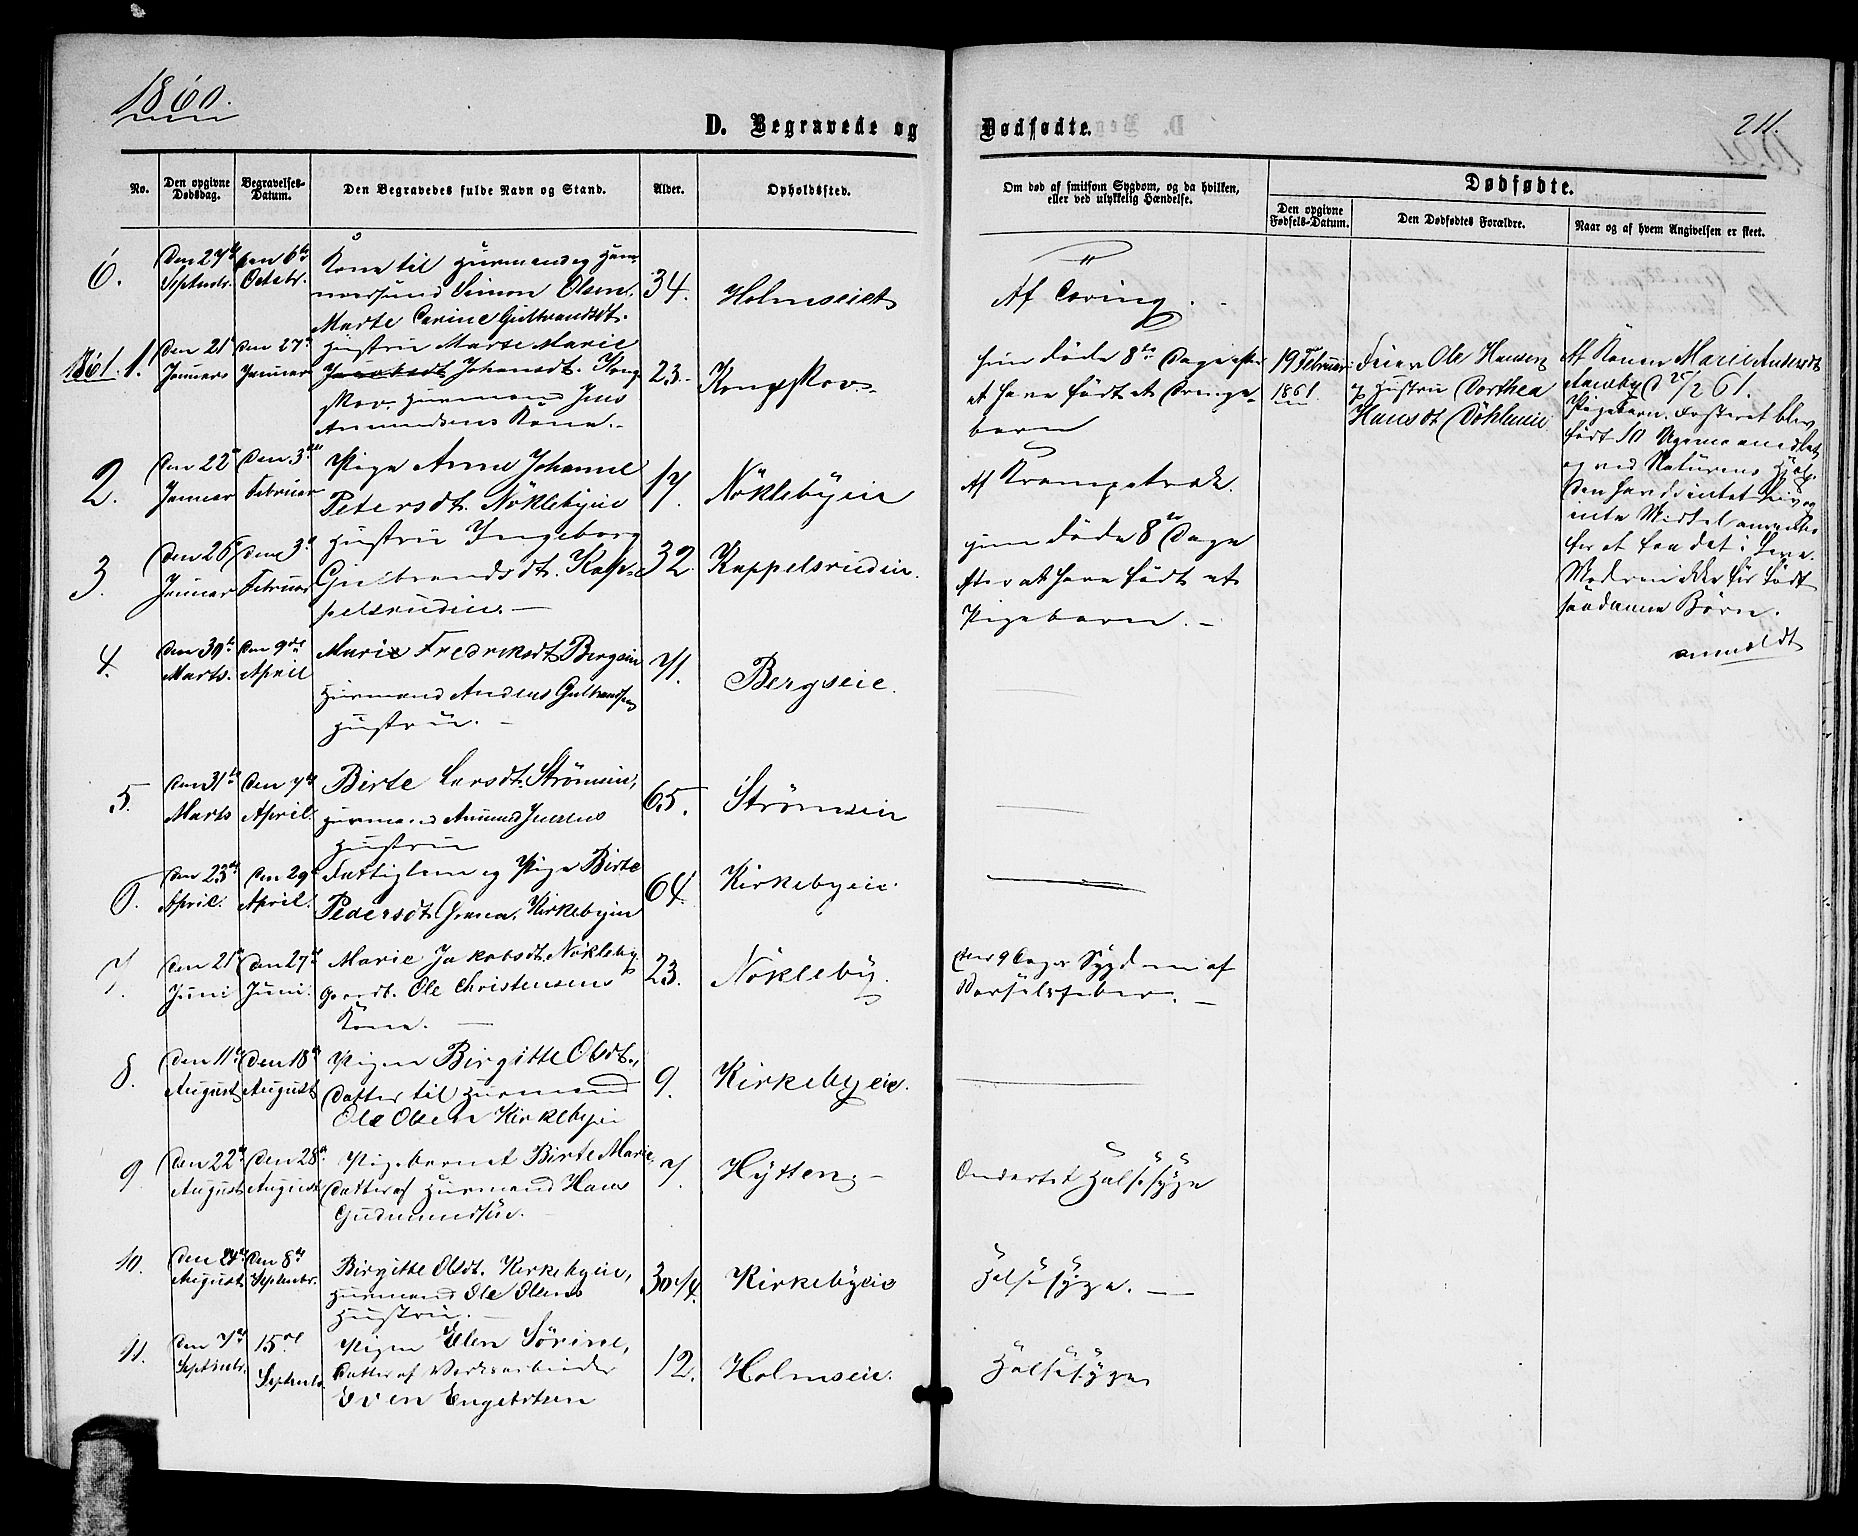 1860.
211.
D. Begravede og Dødfødte.
No.
Den opgivne Dødsdag.
Begravelses-Datum.
Den Begravedes fulde Navn og Stand.
Alder.
Opholdssted.
Om død af smitsom Sygdom, og da hvilken,
eller ved ulykkelig Hændelse.
Dødfødte.
Den opgivne Fødsels-Datum.
Den Dødfødtes Forældre.
Naar og af hvem Angivelsen er skeet.
6.
Den 27de Septembr.
Den 6te Octobr.
Kone til Huusmand og
Simon Olsen,
Marte Carine Gulbrandsdt.
34.
Holmseiet
Af Tæring.
1861. 1.
Den 21de Januar
Den 27de Januar
Hustru Marte Marie
Jacobsdt Johansdt. Kongs-
skov. Huusmand Jens
Amundsens Kone.
23.
Kongsskov.
Hun døde 8te Dage efter
at have født et Drenge-
barn
19 Februar
1861.
Feier Ole Hansen
og Hustru Dorthea
Hansdt Døhleneie
Af Konen Marie Andersdt
25/2 61.
Pigebarn. Fosteret blev
født 10 Uger
og ved Naturens Hjælp.
Den havde intet Liv og
inte Middel anvendtes
for at faa det i Live.
Moderen ikke før født
saadanne Børn.
anmeldt
2.
Den 22de Januar
Den 3die Februar
Pige Anne Johanne
Petersdt. Nöklebyeie
17.
Nöklebyeie
Af Krampetræk.
3.
Den 26de Januar
Den 3die Februar
Hustru Ingeborg
Gulbrandsdt. Kap-
pelsrudeie.
32.
Kappelsrudeie.
Hun døde 8te Dage
efter at have født et
Pigebarn.
4.
Den 30te Marts.
Den 9de April
Marie Fredriksdt Bergseie
Huusmand Andreas Gulbrandsens
Hustru.
71.
Bergseie.
5.
Den 31te Marts
Den 7de April.
Birte Larsdt. Strømseie,
Huusmand Amund Juelsens
Hustru
65.
Strømseie
6.
Den 23de April.
Den 29de April.
Fattiglem og Pige Birte
Pedersdt. Kirkebyeie
64.
Kirkebyeie.
7.
Den 21de Juni
Den 27de Juni.
Marie Jakobsdt. Nökleby
Gaardb. Ole Christensens
Kone.
23.
Nökleby.
Efter 9 Dages Sygdom af
Barselsfeber.
8.
Den 11te August
Den 18de August
Pigen Birgitte Olsdt.,
Datter til Huusmand
Ole Olsen Kirkebyeie
9.
Kirkebyeie.
9.
Den 22de August
Den 28de August
Pigebarnet Birte Marie,
Datter af Huusmand Hans
Gudmundsen.
7.
Hÿtten
Ondartet Halssyge
10.
August
Den 8de Septembr.
Birgitte Olsdt. Kirkebyeie,
Huusmand Ole Olsens
Hustru.
30 1/4.
Kirkebyeie
Halssyge.
11.
Den 7de Septembr.
15de Septembr.
Pigen Elen Sörine,
Datter af Værksarbeider
Even Engebrtsen
12.
Holmseie.
Halssyge